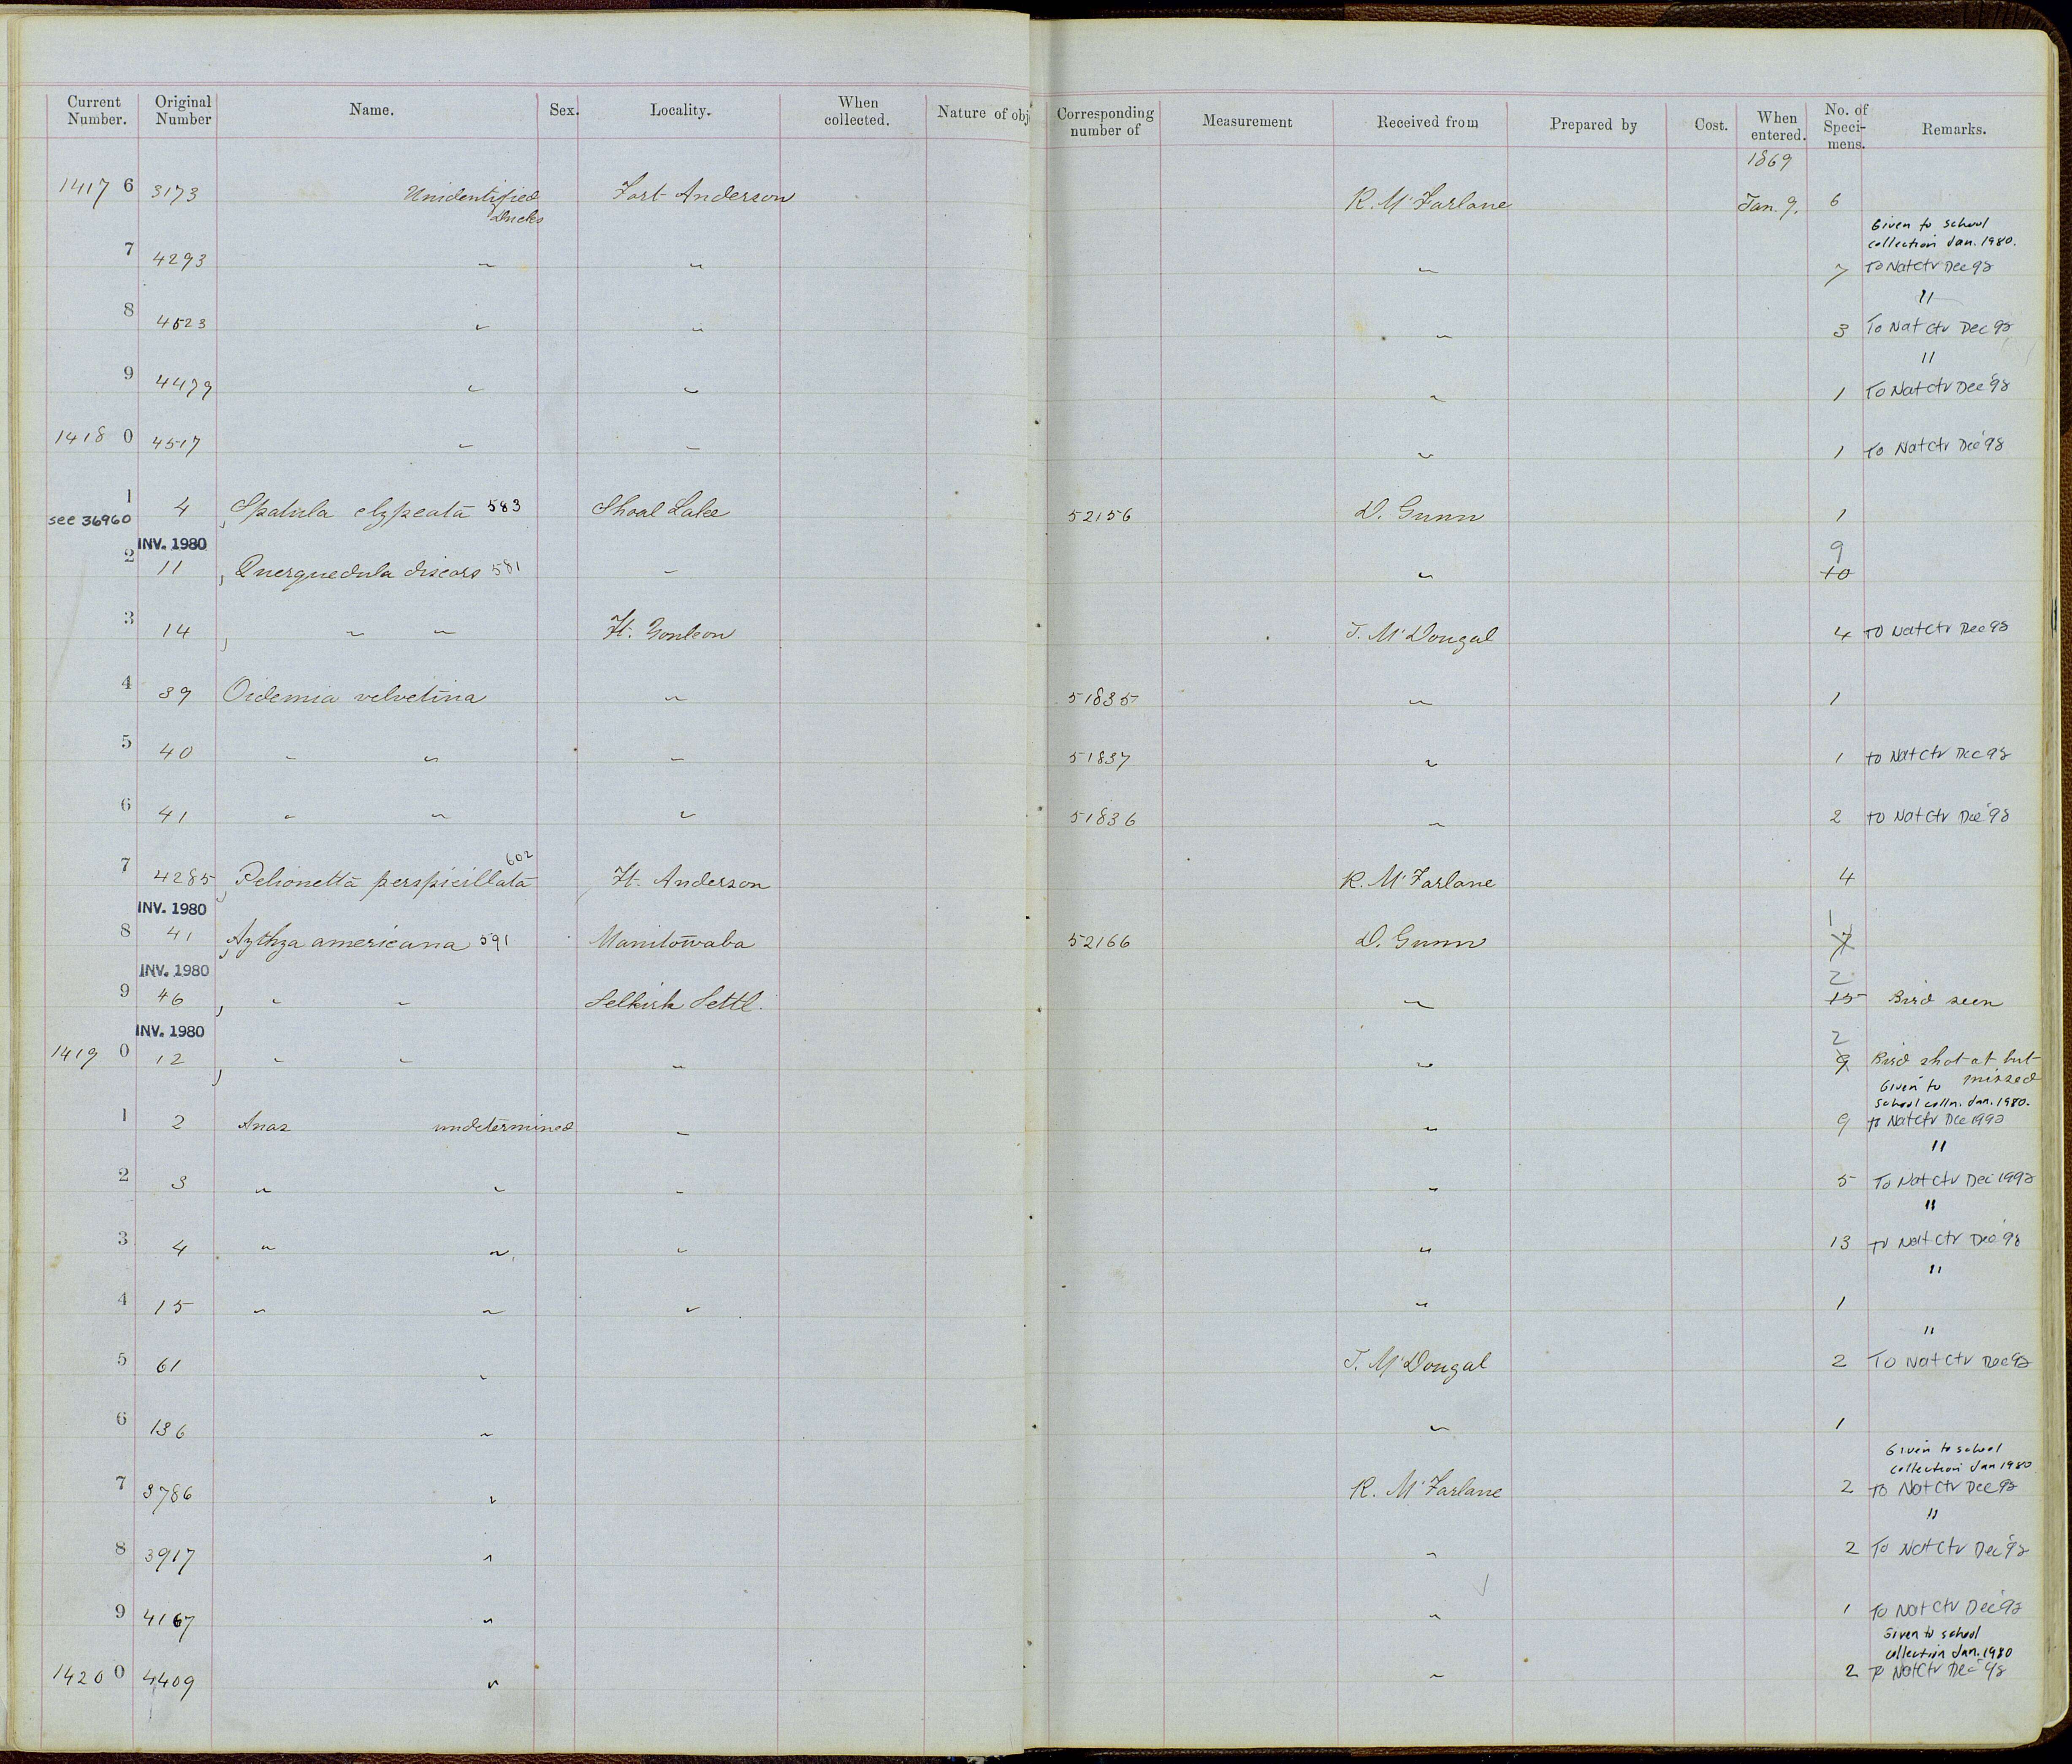 Current Number. Original Number Name. Sex. Locality. When collected. Nature of obj Corresponding number of Measurement Received from Prepared by Cost. When entered. No. of Speci- mens. Remarks.
1869
1417 6 3173 Unidentified Fort Anderson R. McFarlane Jan. 9. 6
Ducks
Given to school
collection Jan. 1980.
7 4293 " " " 7 To Nat Ctr Dec 98
"
8 4523 " " " 3 To Nat Ctr Dec 98
"
9 4479 " " " 1 To Nat Ctr Dec '98
1418 0 4517 " " " 1 To Nat Ctr Dec '98
1 4 Spatula clypeata 583 Shoal Lake 52156 D. Gunn 1
see 36960
INV. 1980
9
2 11 Querquedula discors 581 " " 10
3 14 " " Ft. McDougal 4 To Nat Ctr Dec 98
4 39 Oidemia velvetina " 51835 " 1
5 40 " " " 51837 " 1 to Nat Ctr Dec 98
6 41 " " " 51836 " 2 to Nat Ctr Dec '98
602
7 4285 Pelionetta perspicillata Ft. Anderson R. McFarlane 4
INV. 1980
1
8 41 Aythya americana 591 Manitowaba 52166 D. Gunn 7
INV. 1980
2
9 46 " " Selkirk Settl. " 15 Bird seen
INV. 1980
2
1419 0 12 " " " " 9 Bird shot at but
missed
Given to
School colln. Jan. 1980.
1 2 Anas undetermined " " 9 to Nat Ctr Dec 1998
"
2 3 " " " " 5 To Nat Ctr Dec 1998
"
3 4 " " " " 13 to Nat Ctr Dec '98
"
4 15 " " " " 1
"
5 61 " J. McDougal 2 To Nat Ctr Dec 98
6 136 " " 1
Given to school
collection Jan 1980
7 3786 " R. McFarlane 2 To Nat Ctr Dec 98
"
8 3917 " " 2 To Nat Ctr Dec '98
9 4167 " " 1 To Nat Ctr Dec '98
Given to school
collection Jan. 1980
1420 0 4409 " " 2 To Nat Ctr Dec '98